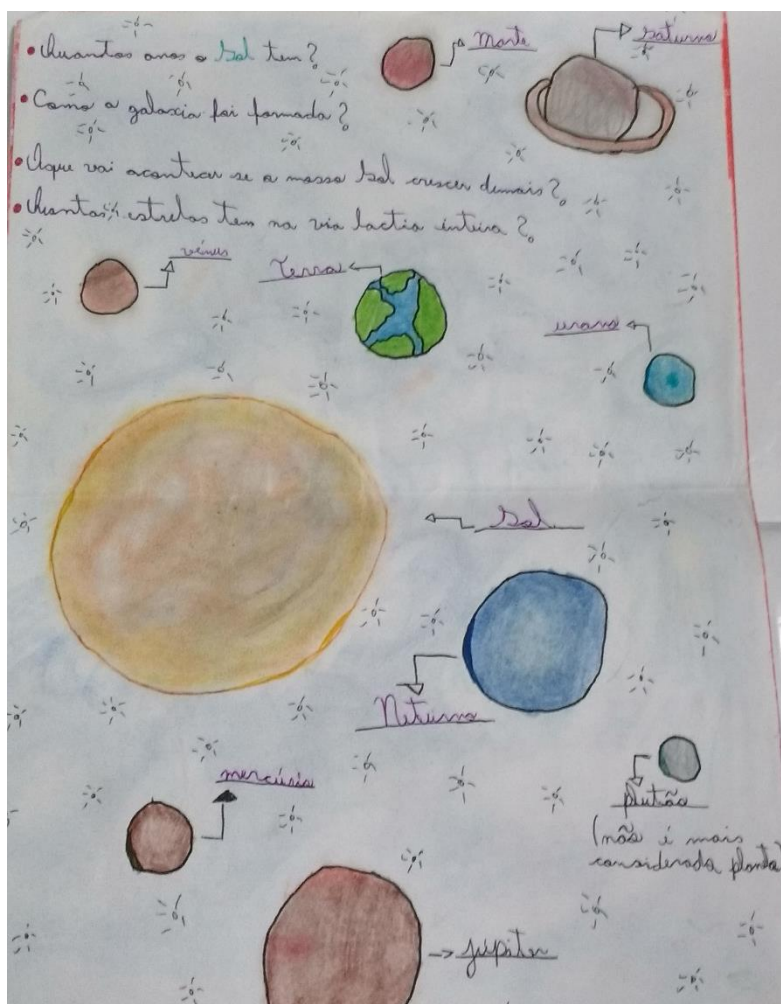 • Quantos anos o Sol tem?
Marte
Saturno
• Como a galaxia foi formada?
• Oque vai acontecer se a massa Sol crescer demais?
• Quantas estrelas tem na via lactia inteira?
vênus
Terra
urano
Sol
Neturno
mercúrio
plutão
(não é mais
considerado planta)
júpiter